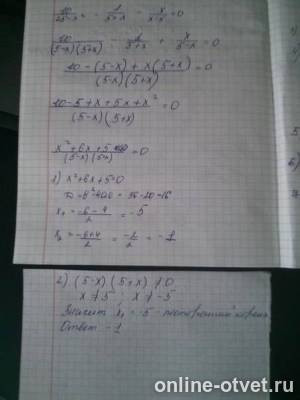 10/(25-x²) - 1/(5+x) - x/(x-5) = 0
10/((5-x)(5+x)) - 1/(5+x) + x/(5-x) = 0
(10-(5-x)+x(5+x))/((5-x)(5+x)) = 0
(10-5+x+5x+x²)/((5-x)(5+x)) = 0
(x²+6x+5)/((5-x)(5+x)) = 0
1) x²+6x+5=0
D = в²-4ac = 36-20=16
x₁ = (-6-4)/2 = -5
x₂ = (-6+4)/2 = -2/2 = -1
2) (5-x)(5+x) ≠ 0
x ≠ 5 x ≠ -5
Значит x₁ = -5 - посторонний корень
Ответ -1
online-otvet.ru